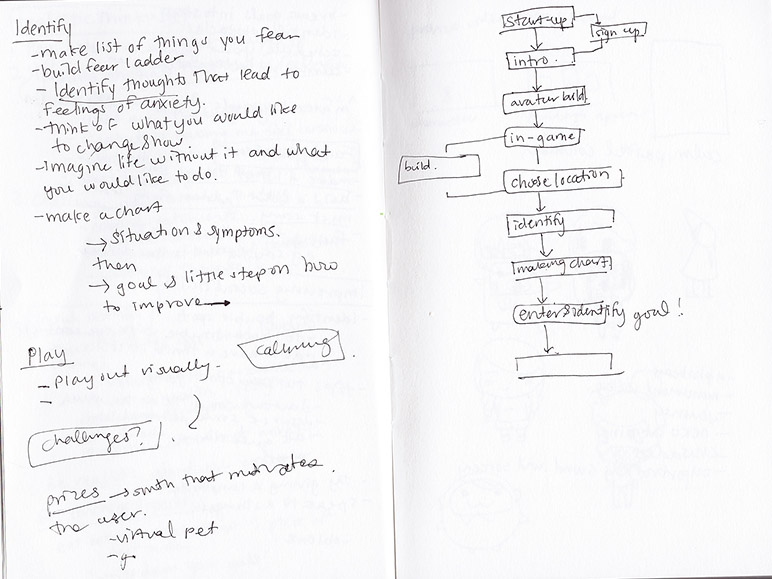 Identify
-make list of things you fear
-build fear ladder
- Identify thoughts that lead to
feelings of anxiety.
-think of what you would like
to change/show.
-imagine life without it and what
you would like to do.
-make a chart
→ situation & symptoms.
then
→ goal & little step on how
to improve →
Play
- Play out visually.
-
calming
challenges?
prizes → smth that motivates
the user.
-virtual pet
-g.
start-up
sign up
intro.
avatar build
in-game
build.
choose location
identify
making chart
enter & identify goal!